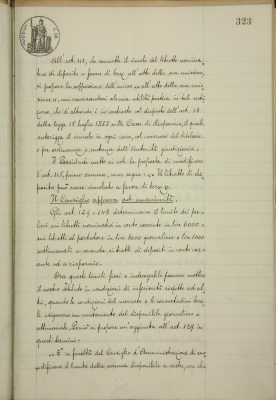 323
All'art. 115, che ammette il vincolo del libretto nomina-
tivo di deposito a favore di terzi all'atto della sua emissione,
si propone la soppressione dell'inciso "all'atto della sua emis-
sione", non riscontrandosi alcuna utilità pratica in tale restri-
zione, che d'altronde è in contrasto col disposto dell'art. 13
della legge 15 luglio 1888 sulle Casse di Risparmio, il quale
autorizza il vincolo in ogni caso, col consenso del titolare
o per ordinanza o sentenza dell'Autorità giudiziaria.
Il Presidente mette ai voti la proposta di modificare
l'art. 115, primo comma, come segue: "Il libretto di de-
posito può essere vincolato a favore di terzi".
Il Consiglio approva ad unanimità.
Gli art. 129 e 143 determinano il limite dei pre-
lievi sui libretti nominativi in conto corrente in lire 6000 e
sui libretti al portatore in lire 3000 giornaliere e lire 1000
settimanali a seconda si tratti di depositi in conto cor-
rente od a risparmio.
Ora questi limiti fissi e inderogabili possono mettere
il nostro Istituto in condizioni di inferiorità rispetto ad al-
tri, quando le condizioni del mercato e le consuetudini loca-
li esigessero un aumento del disponibile giornaliero o
settimanale. Perciò si propone un'aggiunta all'art. 129 in
questi termini:
"È in facoltà del Consiglio d'Amministrazione di mo-
dificare il limite della somma disponibile a vista, ora che